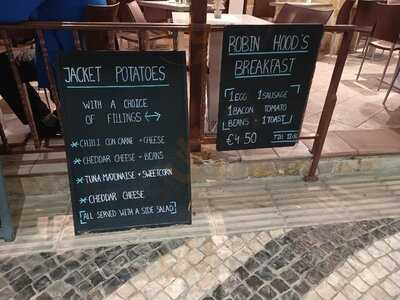 JACKET POTATOES
WITH A CHOICE
OF FILLINGS
* CHILLI CON CARNE + CHEESE
* CHEDDAR CHEESE + BEANS
* TUNA MAYONAISE + SWEETCORN
* CHEDDAR CHEESE
ALL SERVED WITH A SIDE SALAD
ROBIN HOOD'S
BREAKFAST
1 EGG 1 SAUSAGE
1 BACON TOMATO
BEANS + 1 TOAST
€4.50